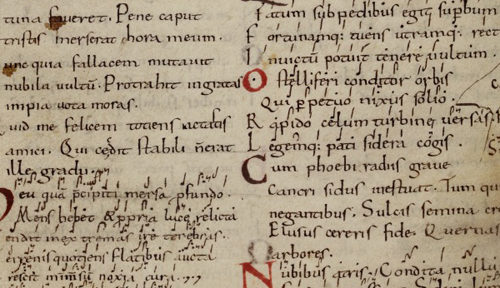 tuna faueret. Pene caput
tristis merserat hora meum.
unc quia fallacem mutauit
nubila uultū. Protrahit ingratas
impia uota moras.
uid me felicem totiens iactatis
amici. Qui cecidit stabili n̄ erat
ille gradu.
eu quā p̄cipiti mersa pfundo
Mens hebet & ppria luce relicta
endit inexternas ire tenebras.
errenis quotiens flatibus aucta
rescit inmensū noxia cura.
Fatum sub pedibus egit supbum
Fortunamq; tuens utramq; rect
Inuictū potuit tenere uultum.
O stelliferi conditor orbis
Qui ppetuo nixus solio.
Rapido celum turbine uersas
Legemq; pati sidera cogis.
Cum phoebi radiis graue
Cancri sidus inestuat. Tum qui
negantibus. Sulcis semina cre
Elusus cereris fide. Quernas
arbores.
Nubibus atris. Condita nullū